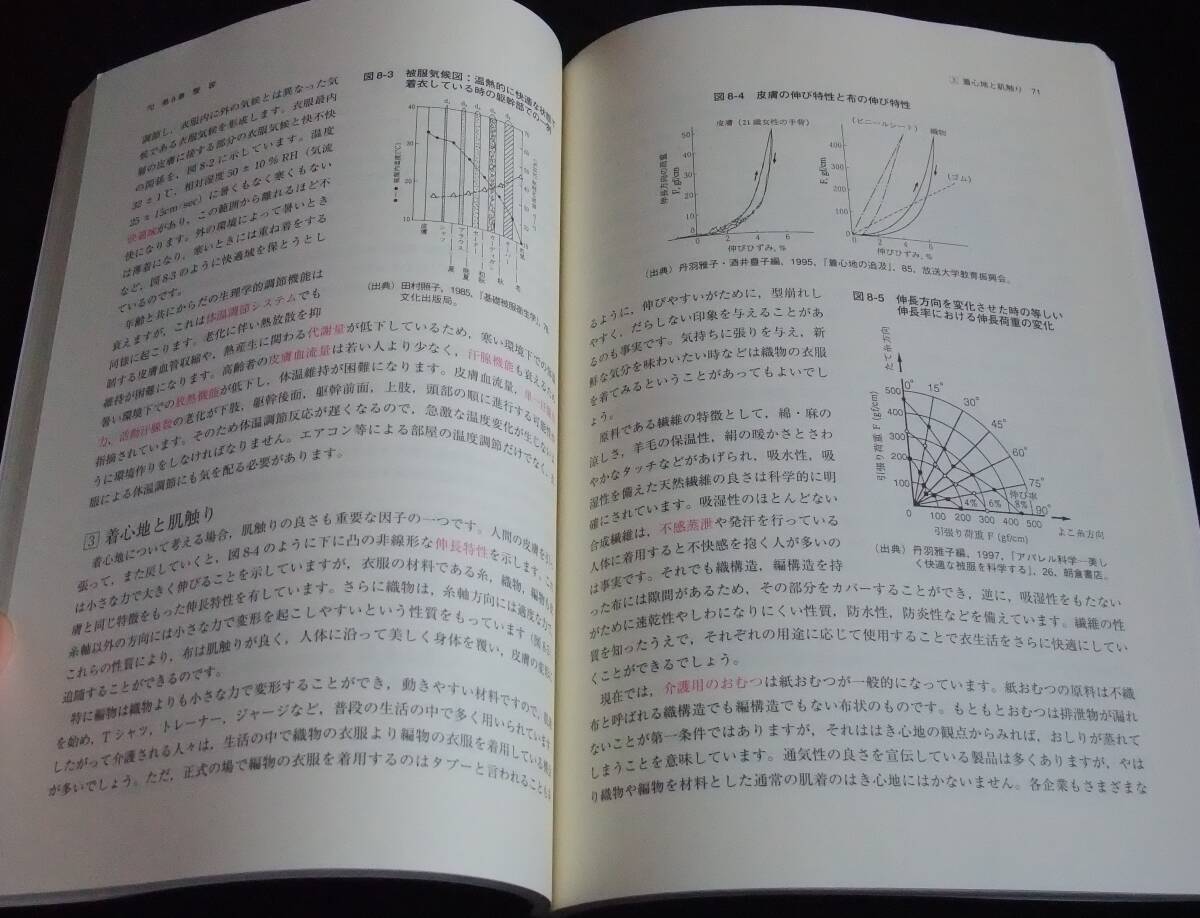 70 第8章 被服
調節し，衣服内に外の気候とは異なった気
候である衣服気候を形成します。衣服最内
層の皮膚に接する部分の衣服気候と快不快
の関係を，図8-2に示しています。温度
32±1℃，相対湿度50±10％RH（気流
25±15cm/sec）に暑くもなく寒くもない
快適域があり，この範囲から離れるほど不
快になります。外の環境によって暑いとき
は薄着になり，寒いときには重ね着をする
など，図8-3のように快適域を保とうとし
ているのです。
年齢と共にからだの生理学的調節機能は
衰えますが，これは体温調節システムでも
同様に起こります。老化に伴い熱放散を抑
制する皮膚血管収縮や，熱産生に関わる代謝量が低下しているため，寒い環境下での
維持が困難になります。高齢者の皮膚血流量は若い人より少なく，汗腺機能も衰えるため
暑い環境下での放熱機能が低下し，体温維持が困難になります。皮膚血流量，単一汗腺
力，活動汗腺数の老化が下肢，躯幹後面，躯幹前面，上肢，頭部の順に進行する可能性が
指摘されています。そのため体温調節反応が遅くなるので，急激な温度変化が生じないよ
うに環境作りをしなければなりません。エアコン等による部屋の温度調節だけでなく，衣
服による体温調節にも気を配る必要があります。
図8-3 被服気候図：温熱的に快適な状態で
着衣している時の躯幹部での一例
40
30
20
10
皮膚
シャツ
ブラウス
夏
晩夏
初秋
秋
冬
（出典）田村照子，1985，『基礎被服衛生学』，76，
文化出版局。
3 着心地と肌触り
着心地について考える場合，肌触りの良さも重要な因子の一つです。人間の皮膚を引っ
張って，また戻していくと，図8-4のように下に凸の非線形な伸長特性を示します。これ
は小さな力で大きく伸びることを示していますが，衣服の材料である糸，織物，編物も皮
膚と同じ特徴をもった伸長特性を有しています。さらに織物は，糸軸方向には適度な力で，
糸軸以外の方向には小さな力で変形を起こしやすいという性質をもっています（図8-5）。
これらの性質により，布は肌触りが良く，人体に沿って美しく身体を覆い，皮膚の変形に
追随することができるのです。
特に編物は織物よりも小さな力で変形することができ，動きやすい材料ですので，肌着
を始め，Tシャツ，トレーナー，ジャージなど，普段の生活の中で多く用いられています。
したがって介護される人々は，生活の中で織物の衣服より編物の衣服を着用している機会
が多いでしょう。ただ，正式の場で編物の衣服を着用するのはタブーと言われることもあ
③ 着心地と肌触り 71
図8-4 皮膚の伸び特性と布の伸び特性
皮膚（21歳女性の手背）
伸長方向の荷重
F, gf/cm
50
40
30
20
10
0
2 4 6
伸びひずみ，％
（ビニールシート） 織物
（ゴム）
F, gf/cm
400
300
200
100
0
2 4 6
伸びひずみ，％
（出典）丹羽雅子・酒井豊子編，1995，『着心地の追及』，85，放送大学教育振興会。
るように，伸びやすいがために，型崩れし
やすく，だらしない印象を与えることがあ
るのも事実です。気持ちに張りを与え，新
鮮な気分を味わいたい時などは織物の衣服
を着てみるということがあってもよいでし
ょう。
原料である繊維の特徴として，綿・麻の
涼しさ，羊毛の保温性，絹の暖かさとさわ
やかなタッチなどがあげられ，吸水性，吸
湿性を備えた天然繊維の良さは科学的に明
確にされています。吸湿性のほとんどない
合成繊維は，不感蒸泄や発汗を行っている
人体に着用すると不快感を抱く人が多いの
は事実です。それでも織構造，編構造を持
った布には隙間があるため，その部分をカバーすることができ，逆に，吸湿性をもたない
がために速乾性やしわになりにくい性質，防水性，防炎性などを備えています。繊維の性
質を知ったうえで，それぞれの用途に応じて使用することで衣生活をさらに快適にしてい
くことができるでしょう。
図8-5 伸長方向を変化させた時の等しい
伸長率における伸長荷重の変化
たて糸方向
引張り荷重 F (gf/cm)
500
400
300
200
100
0
0° 15° 30° 45° 60° 75° 90°
伸び率
4% 6% 8%
0 100 200 300 400 500
よこ糸方向
引張り荷重 F (gf/cm)
（出典）丹羽雅子編，1997，『アパレル科学―美し
く快適な被服を科学する』，26，朝倉書店。
現在では，介護用のおむつは紙おむつが一般的になっています。紙おむつの原料は不織
布と呼ばれる織構造でも編構造でもない布状のものです。もともとおむつは排泄物が漏れ
ないことが第一条件ではありますが，それははき心地の観点からみれば，おしりが蒸れて
しまうことを意味しています。通気性の良さを宣伝している製品は多くありますが，やは
り織物や編物を材料とした通常の肌着のはき心地にはかないません。各企業もさまざまな